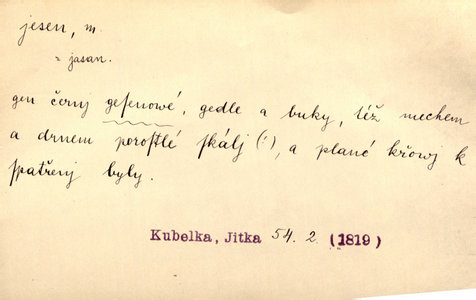 jesen, m.
= jasan.
gen černj gesenowé, gedle a buky, též mechem
a drnem porostlé skálj (!), a plané křowj k
spatřenj byly.
Kubelka, Jitka 54. 2. (1819)